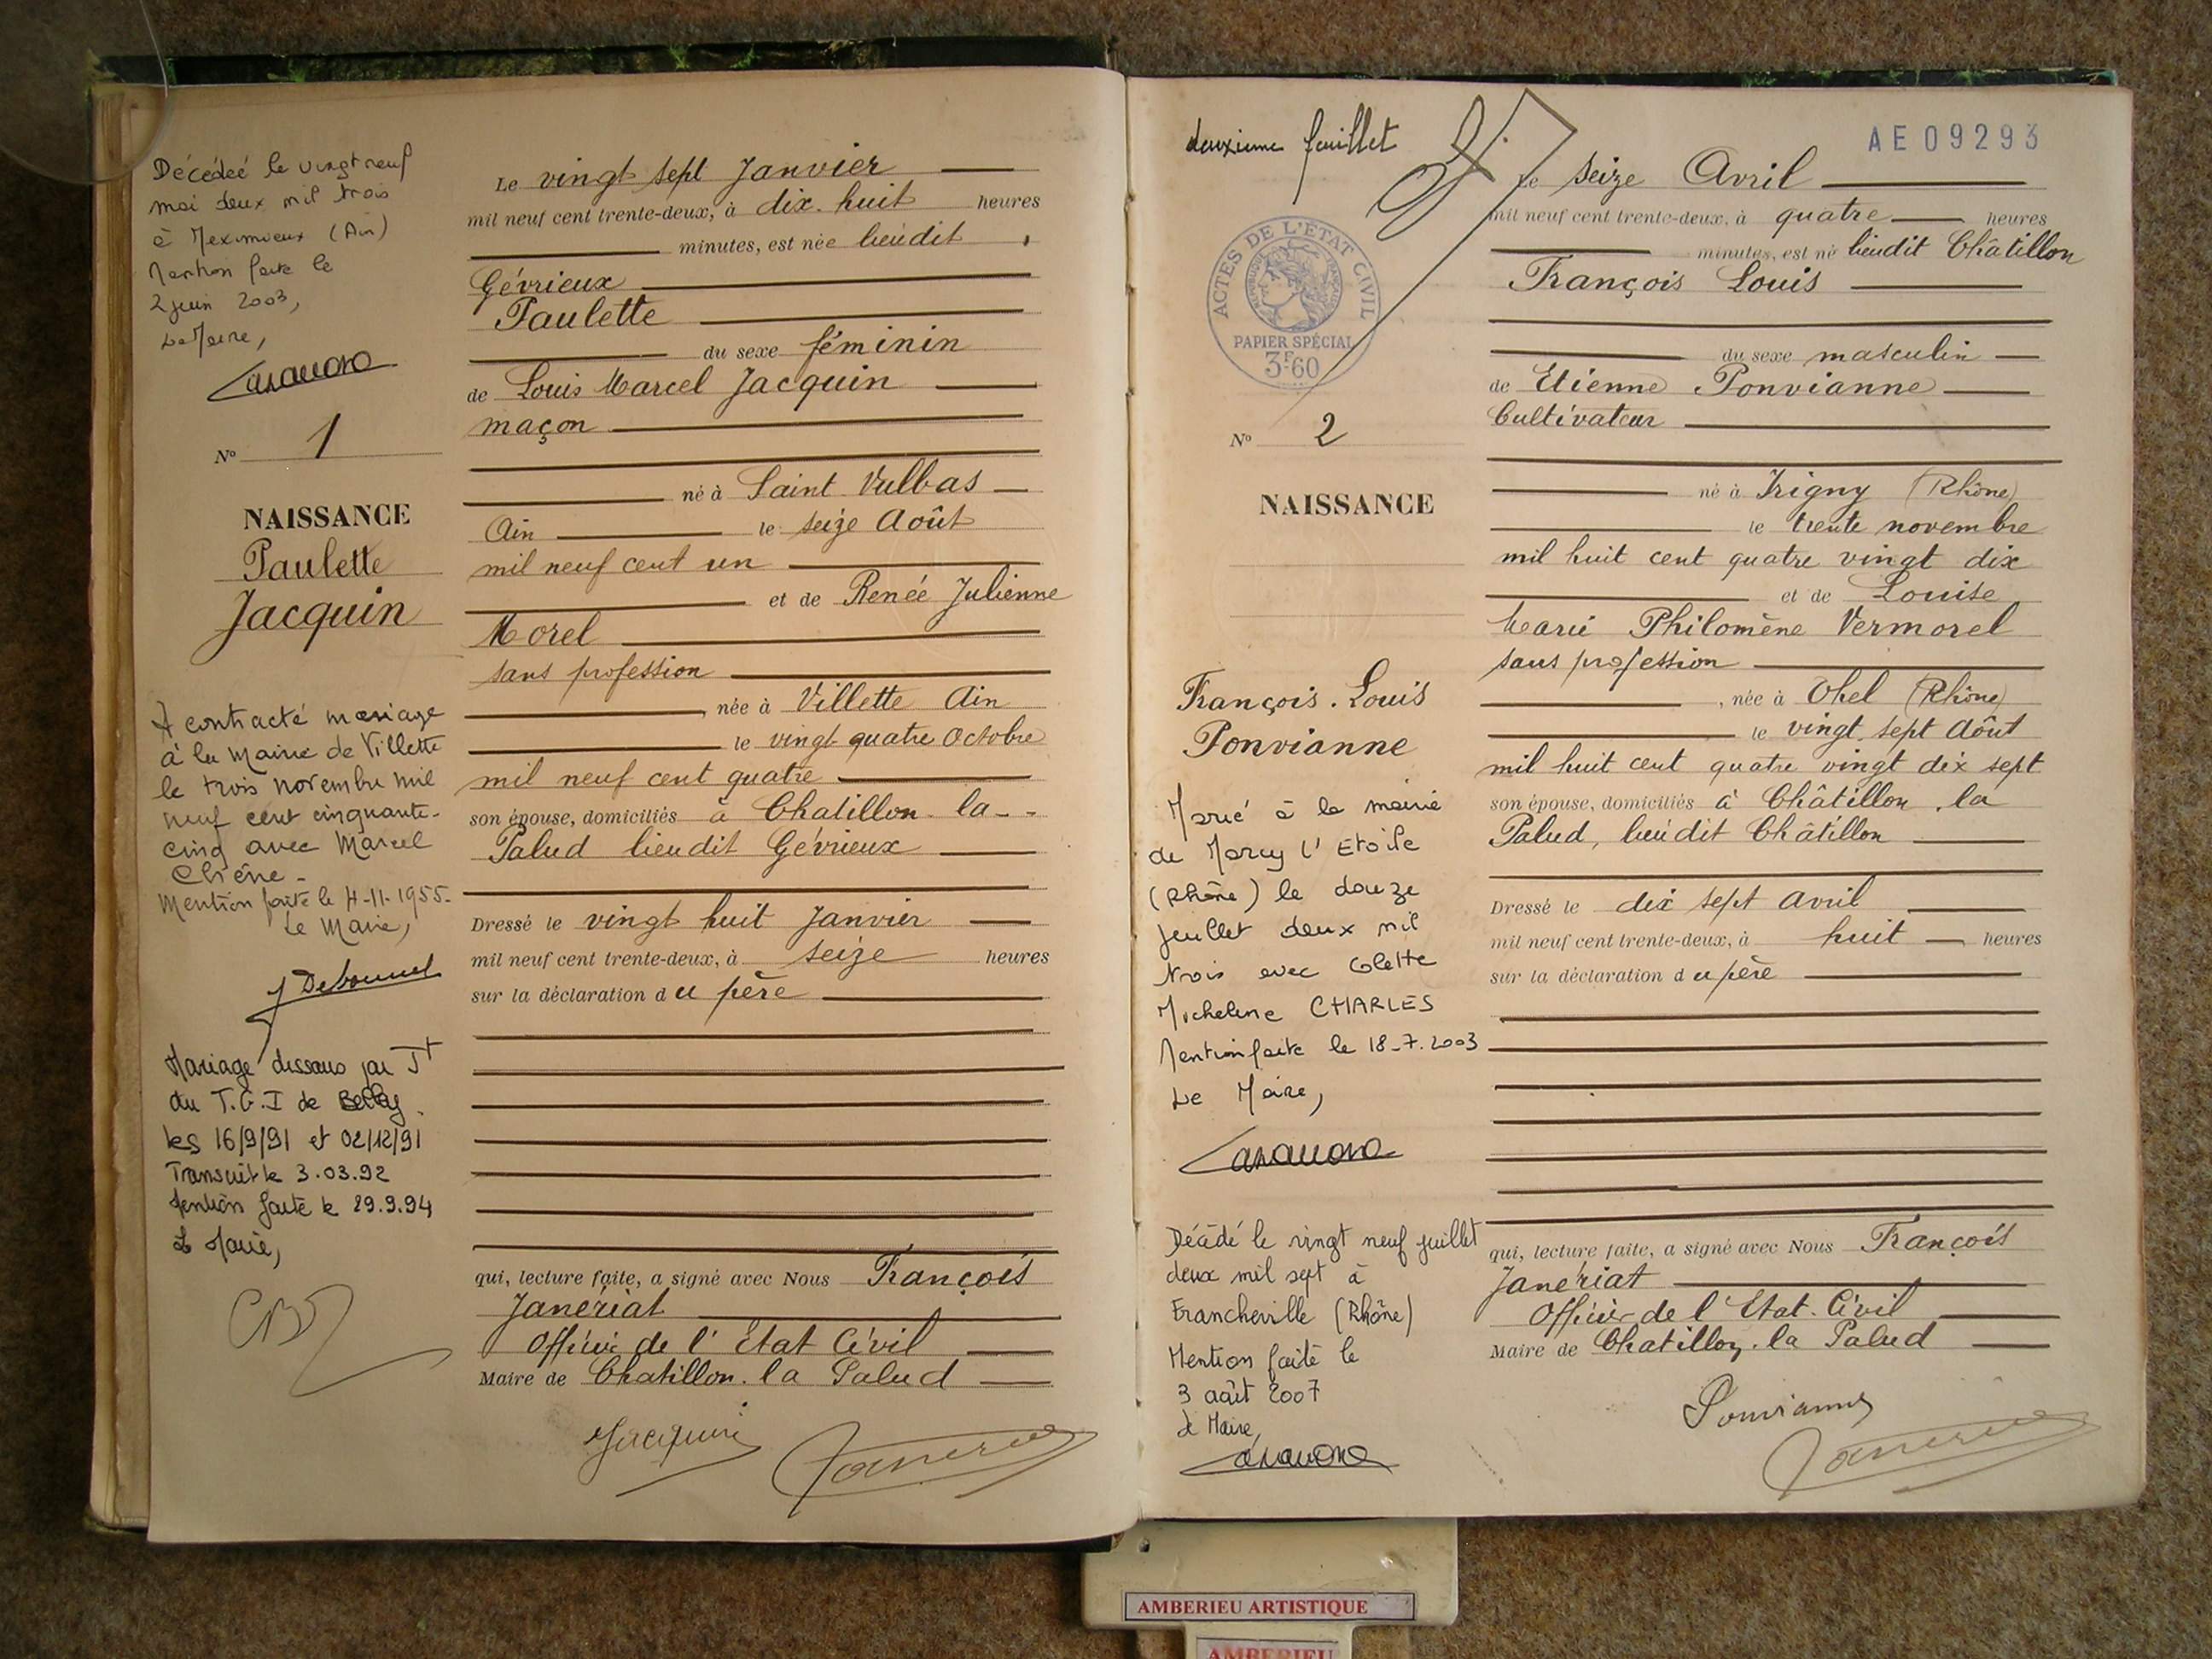 Décédée le vingt neuf
mai deux mil trois
à Meximieux (Ain)
Mention faite le
2 juin 2003,
Le Maire,
Casanova
N° 1
NAISSANCE
Paulette
Jacquin
A contracté mariage
à la Mairie de Villette
le trois novembre mil
neuf cent cinquante-
cinq avec Marcel
Chêne -
Mention faite le 4-11-1955-
Le Maire,
Mariage dissous par Jt
du T.G.I de Belley
les 16/9/91 et 02/12/91
Transcrit le 3.03.92
Mention faite le 29.9.94
Le Maire,
Le vingt sept Janvier
mil neuf cent trente-deux, à dix-huit heures
minutes, est née lieudit
Gévrieux
Paulette
du sexe féminin
de Louis Marcel Jacquin
maçon
né à Saint Vulbas
Ain le seize Août
mil neuf cent un
et de Renée Julienne
Morel
sans profession
, née à Villette Ain
le vingt quatre Octobre
mil neuf cent quatre
son épouse, domiciliés à Chatillon la -
Palud lieudit Gévrieux
Dressé le vingt huit Janvier
mil neuf cent trente-deux, à seize heures
sur la déclaration du père
qui, lecture faite, a signé avec Nous François
Janériat
Officier de l'Etat Civil
Maire de Chatillon-la Palud
Jacquin Janeriat
deuxième feuillet
AE09293
ACTES DE L'ÉTAT CIVIL
PAPIER SPÉCIAL
3F60
N° 2
NAISSANCE
François-Louis
Ponvianne
Marié à la mairie
de Marcy l'Etoile
(Rhône) le douze
juillet deux mil
trois avec Colette
Micheline CHARLES
Mention faite le 18-7-2003
Le Maire,
Casanova
Décédé le vingt neuf juillet
deux mil sept à
Francheville (Rhône)
Mention faite le
3 août 2007
Le Maire,
Casanova
Le seize Avril
mil neuf cent trente-deux, à quatre heures
minutes, est né lieudit Châtillon
François Louis
du sexe masculin
de Etienne Ponvianne
Cultivateur
né à Irigny (Rhône)
le trente novembre
mil huit cent quatre vingt dix
et de Louise
Marie Philomène Vermorel
sans profession
, née à Thel (Rhône)
le vingt-sept Août
mil huit cent quatre vingt dix sept
son épouse, domiciliés à Châtillon-la
Palud, lieudit Châtillon
Dressé le dix sept avril
mil neuf cent trente-deux, à huit heures
sur la déclaration du père
qui, lecture faite, a signé avec Nous François
Janériat
Officier de l'Etat-Civil
Maire de Chatillon-la Palud
Ponvianne
Janeriat
AMBERIEU ARTISTIQUE
AMBERIEU